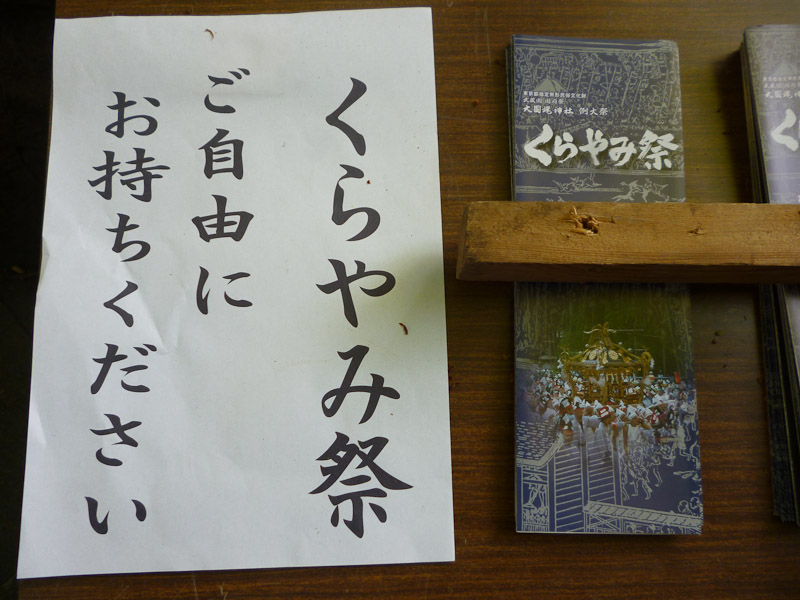 くらやみ祭
ご自由に
お持ちください
東京都指定無形民俗文化財
武蔵国 国府祭
大國魂神社 例大祭
くらやみ祭
大國魂神